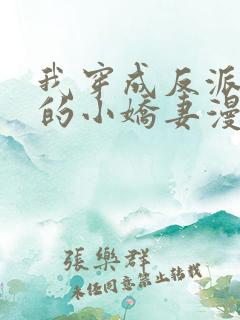 我穿成反派
的小嬌妻漫
張樂群
未經同意禁止轉載